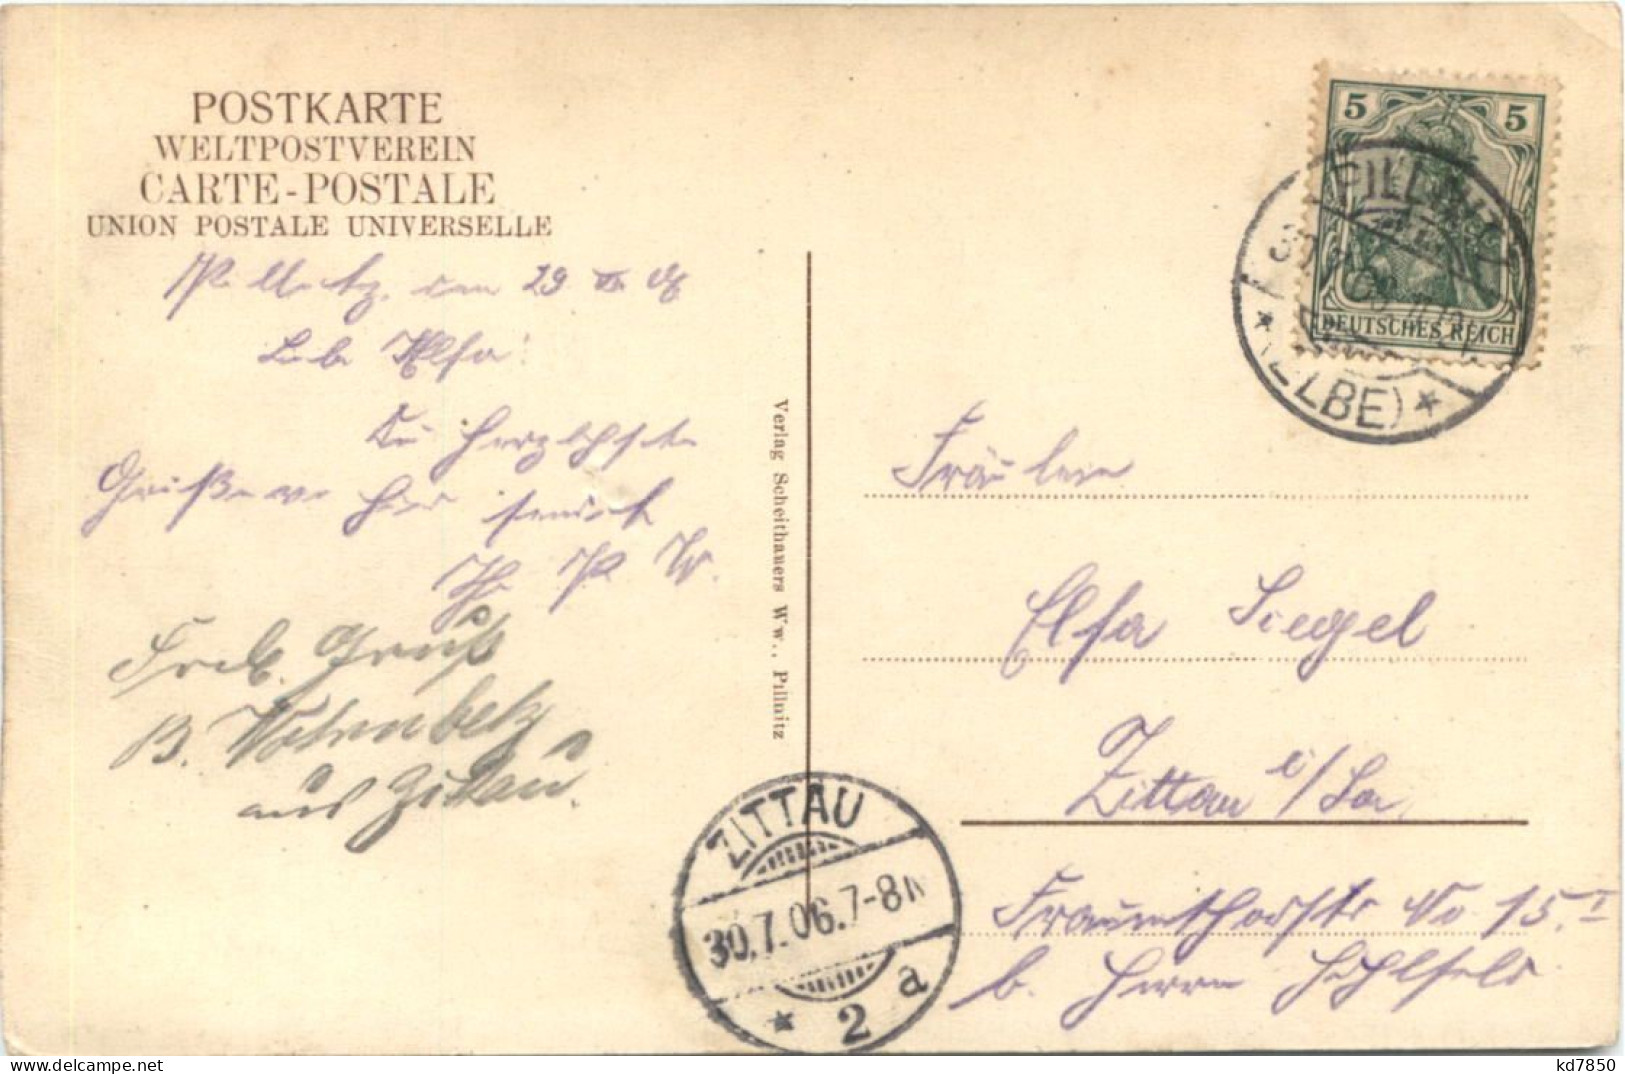 POSTKARTE
WELTPOSTVEREIN
CARTE-POSTALE
UNION POSTALE UNIVERSELLE
Pillnitz, den 29
Liebe Elsa!
Die herzlichsten
Grüße von hier sendet
H. P. W.
Frdl. Gruß
B.
aus Zittau.
Verlag Scheithauers Ww., Pillnitz
5 5
DEUTSCHES REICH
PILLNITZ
(ELBE)
Fräulein
Elsa Siegel
Zittau i/Sa.
Frauenthorstr No 15. I
b. Herrn Hohlfeld
ZITTAU
30.7.06.7-8N
* 2 a
kd7850